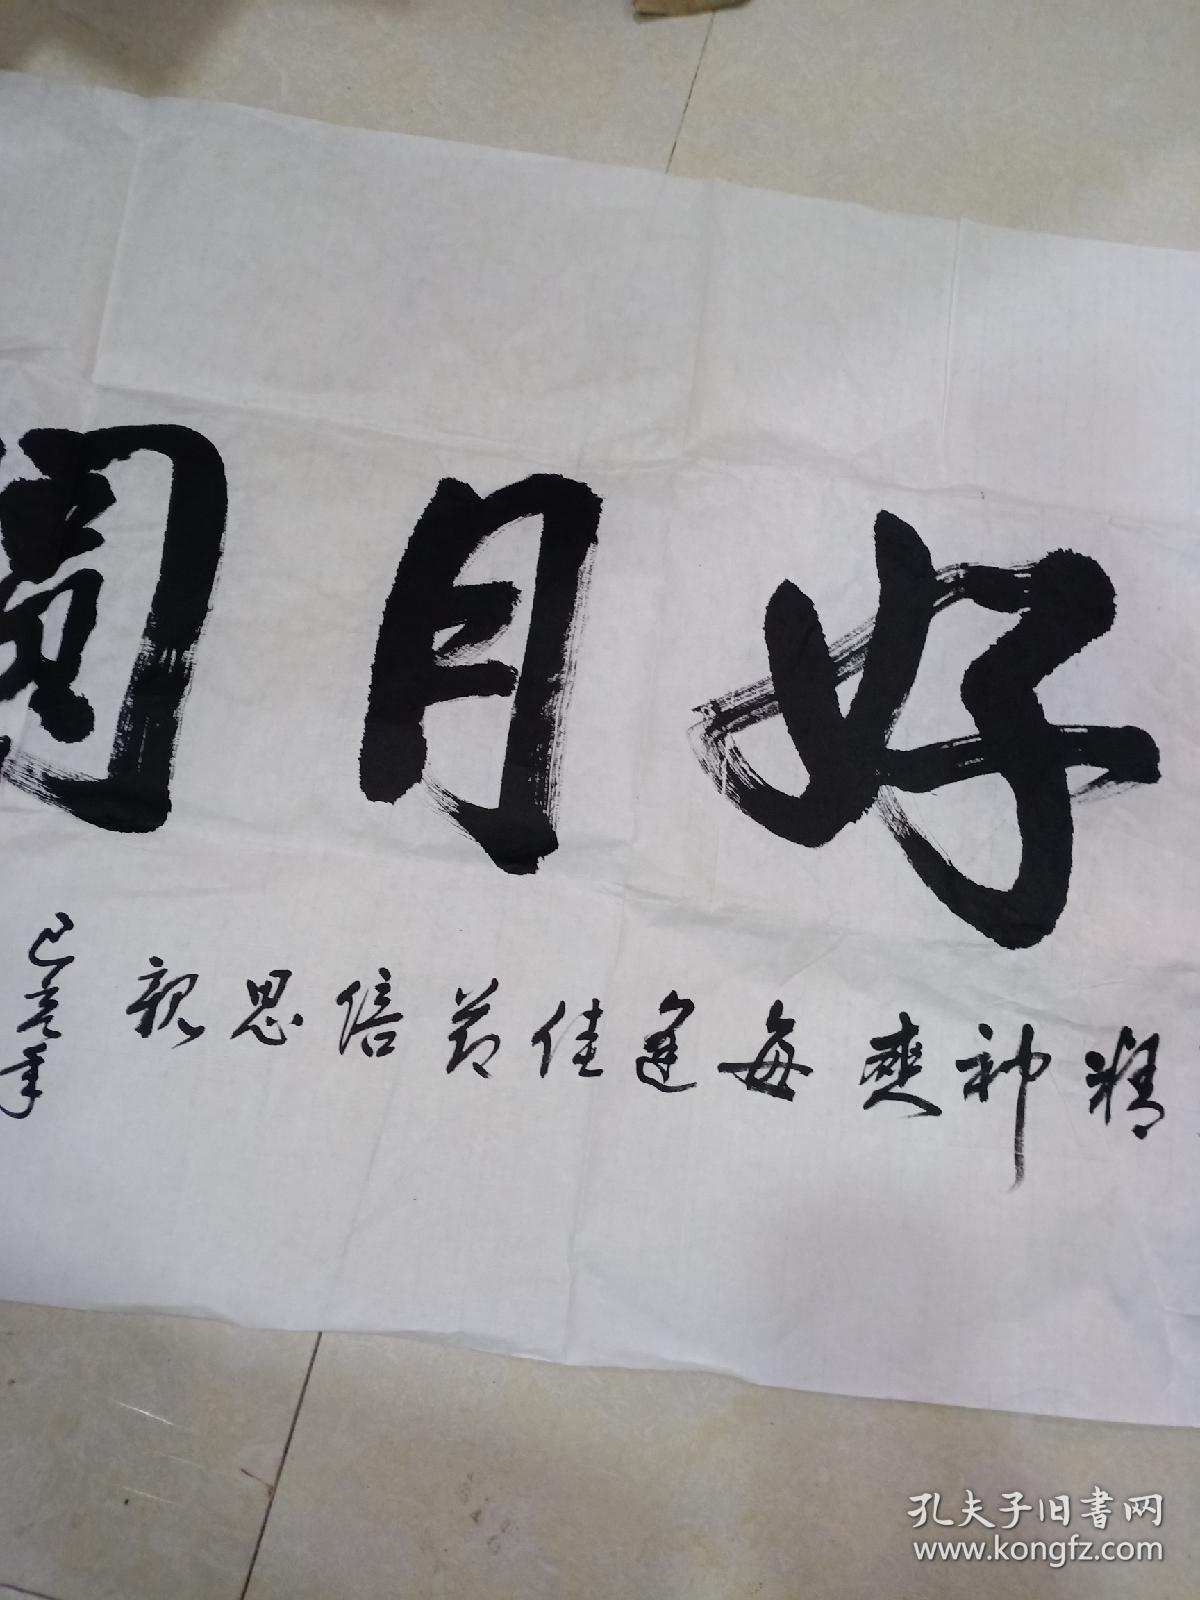 好月圆
精神爽每逢佳节倍思親
己亥年
孔夫子旧書网
www.kongfz.com